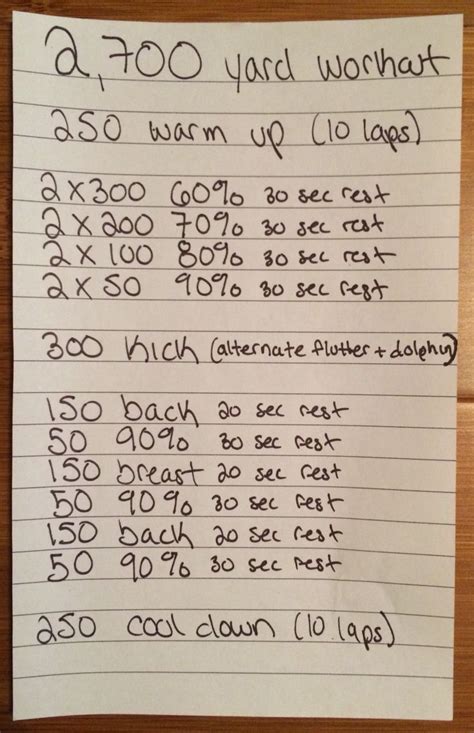 2,700 yard workout
250 warm up (10 laps)
2 x 300 60% 30 sec rest
2 x 200 70% 30 sec rest
2 x 100 80% 30 sec rest
2 x 50 90% 30 sec rest
300 kick (alternate flutter + dolphin)
150 back 20 sec rest
50 90% 30 sec rest
150 breast 20 sec rest
50 90% 30 sec rest
150 back 20 sec rest
50 90% 30 sec rest
250 cool down (10 laps)